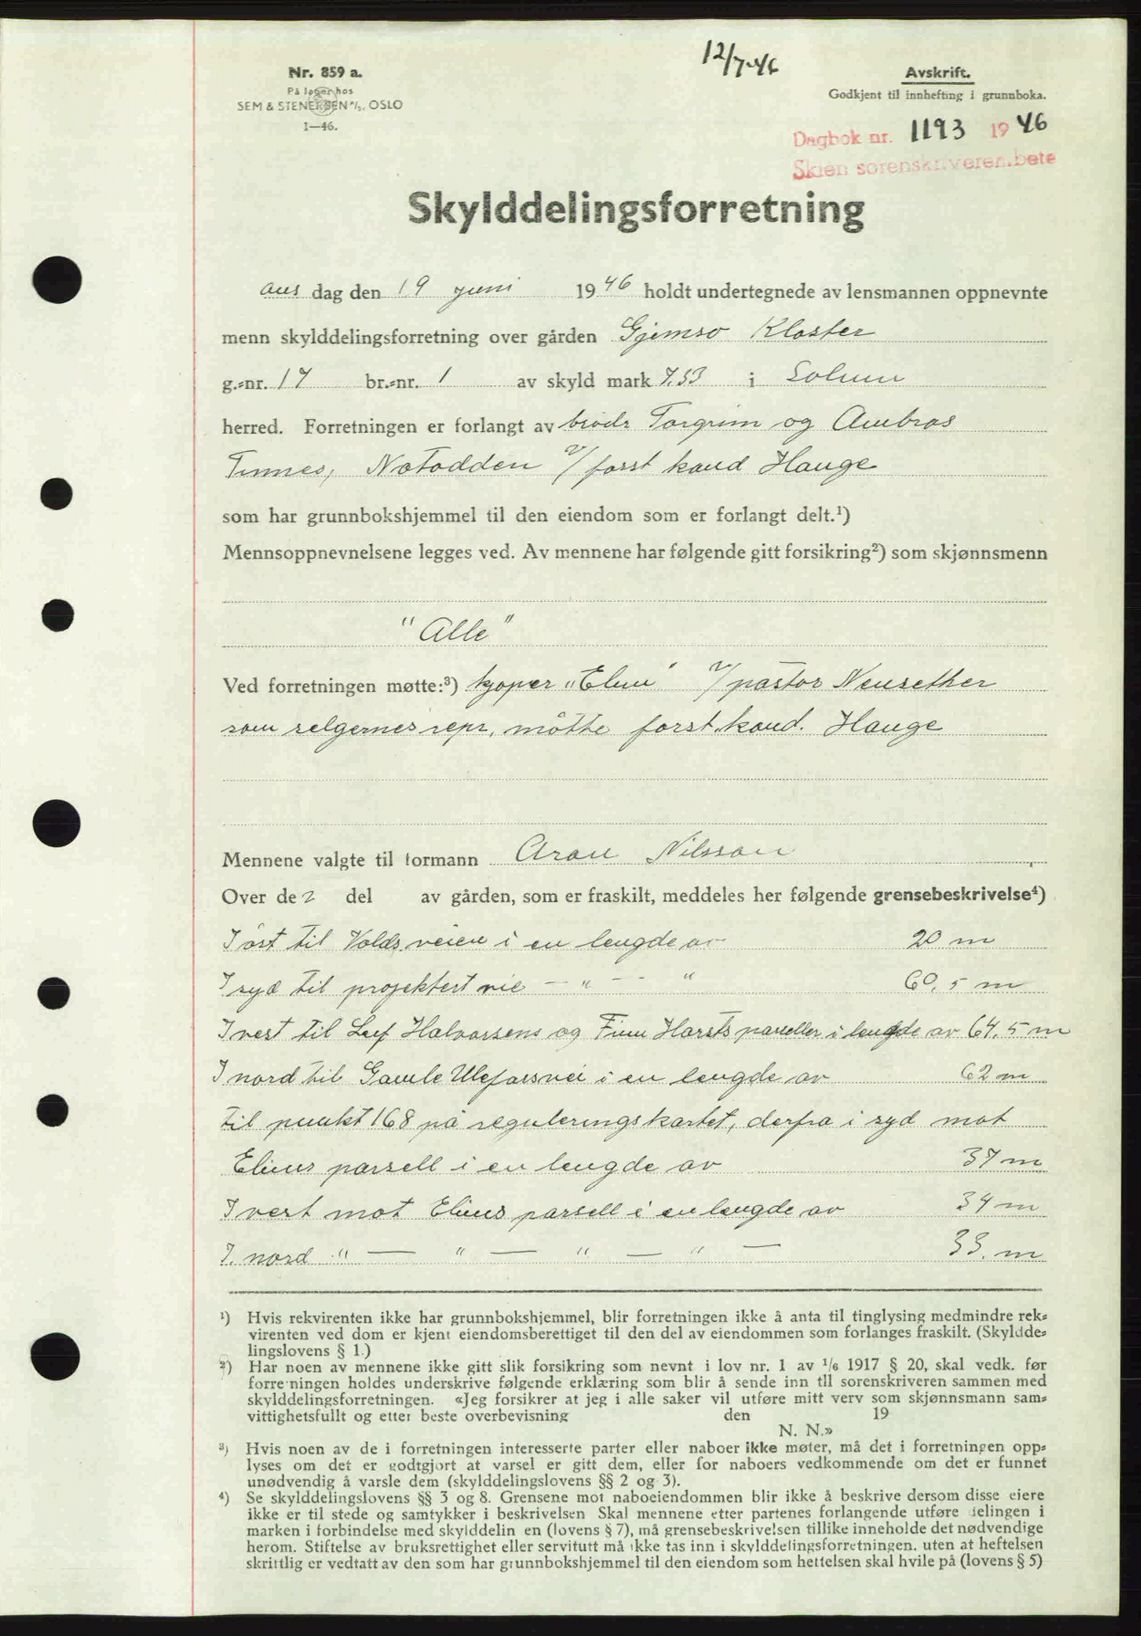 12/7-46
Nr. 859 a.
På lager hos
SEM & STENERSEN A/S, OSLO
1—46.
Avskrift.
Godkjent til innhefting i grunnboka.
Dagbok nr. 1193 1946
Skien sorenskriverembete
Skylddelingsforretning
Ons dag den 19 juni 1946 holdt undertegnede av lensmannen oppnevnte
menn skylddelingsforretning over gården Gjemsø Kloster
g.-nr. 17 br.-nr. 1 av skyld mark 7.53 i Solum
herred. Forretningen er forlangt av brødr Torgrim og Ambros
Tinnes, Notodden v/forst kand Hauge
som har grunnbokshjemmel til den eiendom som er forlangt delt.¹)
Mennsoppnevnelsene legges ved. Av mennene har følgende gitt forsikring²) som skjønnsmenn
"Alle"
Ved forretningen møtte:³) kjøper "Elim" v/pastor Neusether
som selgernes repr. møtte forst.kand. Hauge
Mennene valgte til formann Aron Nilsson
Over de 2 del av gården, som er fraskilt, meddeles her følgende grensebeskrivelse⁴)
I øst til Voldsveien i en lengde av 20 m
I syd til projektert vie — " — " 60,5 m
I vest til Leif Halvorsens og Finn Horsts parseller i lengde av 64,5 m
I nord til Gamle Ulefossvei i en lengde av 62 m
til punkt 168 på reguleringskartet, derfra i syd mot
Elims parsell i en lengde av 37 m
I vest mot Elims parsell i en lengde av 34 m
I. nord " — " — " — " — 33. m
¹) Hvis rekvirenten ikke har grunnbokshjemmel, blir forretningen ikke å anta til tinglysing medmindre rek-
virenten ved dom er kjent eiendomsberettiget til den del av eiendommen som forlanges fraskilt. (Skyldde-
lingslovens § 1.)
²) Har noen av mennene ikke gitt slik forsikring som nevnt i lov nr. 1 av 1/6 1917 § 20, skal vedk. før
forretningen holdes underskrive følgende erklæring som blir å sende inn til sorenskriveren sammen med
skylddelingsforretningen. «Jeg forsikrer at jeg i alle saker vil utføre mitt verv som skjønnsmann sam-
vittighetsfullt og etter beste overbevisning den 19
N. N.»
³) Hvis noen av de i forretningen interesserte parter eller naboer ikke møter, må det i forretningen opp-
lyses om det er godtgjort at varsel er gitt dem, eller for naboers vedkommende om det er funnet
unødvendig å varsle dem (skylddelingslovens §§ 2 og 3).
⁴) Se skylddelingslovens §§ 3 og 8. Grensene mot naboeiendommen blir ikke å beskrive dersom disse eiere
ikke er til stede og samtykker i beskrivelsen Skal mennene etter partenes forlangende utføre delingen i
marken i forbindelse med skylddelingen (lovens § 7), må grensebeskrivelsen tillike inneholde det nødvendige
herom. Stiftelse av bruksrettighet eller servitutt må ikke tas inn i skylddelingsforretningen. uten at heftelsen
skriftlig er vedtatt av den som har grunnbokshjemmel til den eiendom som heftelsen skal hvile på (lovens § 5)